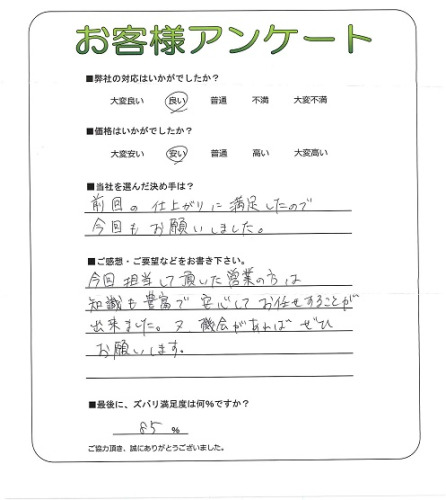 お客様アンケート
■弊社の対応はいかがでしたか?
大変良い 良い 普通 不満 大変不満
■価格はいかがでしたか?
大変安い 安い 普通 高い 大変高い
■当社を選んだ決め手は?
前回の仕上がりに満足したので
今回もお願いしました。
■ご感想・ご要望などをお書き下さい。
今回担当して頂いた営業の方は
知識も豊富で安心してお任せすることが
出来ました。又、機会があればぜひ
お願いします。
■最後に、ズバリ満足度は何%ですか?
85 %
ご協力頂き、誠にありがとうございました。